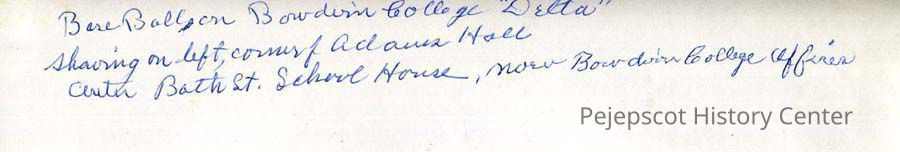 Base Ball on Bowdoin College "Delta"
showing on left, corner of Adams Hall
center Bath St. School House, now Bowdoin College Offices
Pejepscot History Center